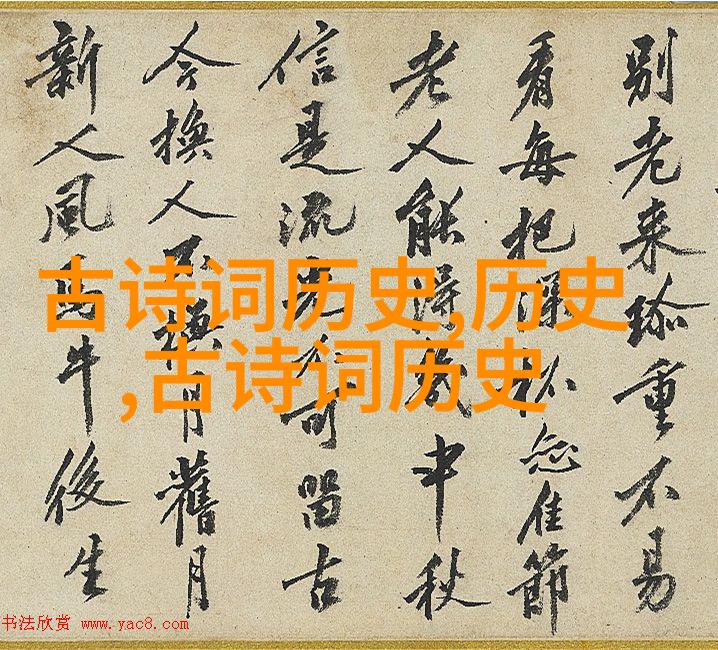 別老来珎重不易
看每把深杯佳節
老人能得幾中秋
信是流光不可留古
今換人不換月舊月
新人風馬牛後生
古诗词历史,历史
,古诗词历史
书法欣赏 www.yac8.com